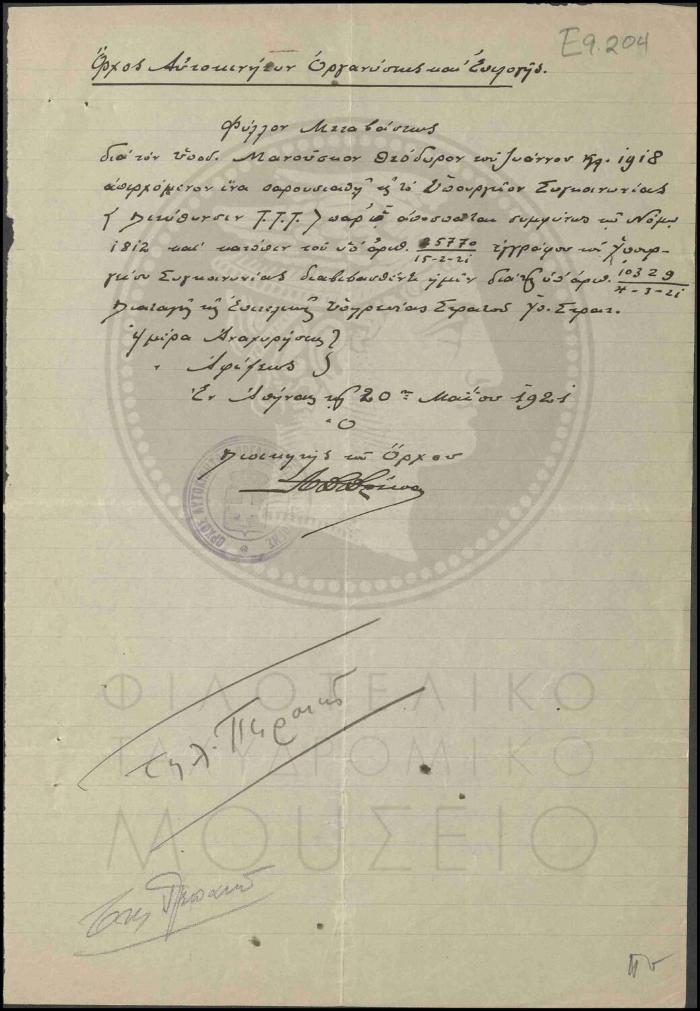 Ε9.204
Ὄρχος Αὐτοκινήτων Ὀργανώσεως καὶ Ἐπιλογῆς.
Φύλλον Μεταβάσεως
διὰ τὸν ὑποδ. Μανοῦσκον Θεόδωρον τοῦ Ἰωάννου κλ. 1918
ἀπερχόμενον ἵνα παρουσιασθῇ εἰς τὸ Ὑπουργεῖον Συγκοινωνίας
(Διεύθυνσιν Τ.Τ.Τ.) παρ' ᾧ ἀποσπᾶται συμφώνως τῷ Νόμῳ
1812 καὶ κατόπιν τοῦ ὑπ' ἀριθ. 5770/15-2-21 ἐγγράφου τοῦ Ὑπουρ-
γείου Συγκοινωνίας διαβιβασθέντος ἡμῖν διὰ τῆς ὑπ' ἀριθ. 10329/4-3-21
Διαταγῆς τῆς Ἐπιτελικῆς Ὑπηρεσίας Στρατοῦ Ὑπ. Στρατ.
Ἡμέρα Ἀναχωρήσεως }
" Ἀφίξεως }
Ἐν Ἀθήναις τῇ 20ῃ Μαΐου 1921
Ὁ
Διοικητὴς τοῦ Ὄρχου
τηλ. Πειραιῶς
Πειραιῶς
ΦΙΛΟΤΕΛΙΚΟ
ΤΑΧΥΔΡΟΜΙΚΟ
ΜΟΥΣΕΙΟ